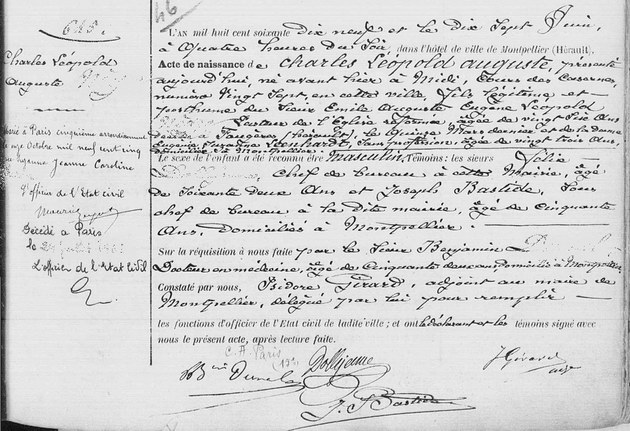 645.
Charles Léopold
Auguste
Marié à Paris cinquième arrondissement
le onze Octobre mil neuf cent cinq
Jeanne Caroline
L'officier de l'Etat civil
Décédé à Paris
le 2
L'officier de l'Etat Civil
46
L'AN mil huit cent soixante Dix neuf et le Dix Sept Juin,
à Quatre heures du Soir, dans l'hôtel de ville de Montpellier (Hérault).
Acte de naissance de Charles Léopold Auguste, présenté
aujourd'hui, né avant hier à Midi, Cours des Casernes,
numéro Vingt Sept, en cette ville, fils légitime et
posthume du Sieur Emile Auguste Eugène Léopold
Pasteur de l'Eglise réformée, âgé de vingt Six Ans
décédé à Faugères (hérault), le Quinze Mars dernier et de la Dame
Eugénie Suzanne Leenhardt, Sans profession, âgée de vingt trois Ans,
domiciliée à Montpellier.
Le sexe de l'enfant a été reconnu être Masculin. Témoins: les sieurs Jolie
chef de bureau à cette Mairie, âgé
de Soixante deux Ans et Joseph Bastide, Sous
chef de bureau à la dite mairie, âgé de Cinquante
Ans, Domiciliés à Montpellier.
Sur la réquisition à nous faite par le Sieur Benjamin D
Docteur en médecine, âgé de Cinquante deux ans, domicilié à Montpellier
Constaté par nous, Isidore Girard, adjoint au maire de
Montpellier, délégué par lui pour remplir
les fonctions d'officier de l'Etat civil de ladite ville; et ont le déclarant et les témoins signé avec
nous le présent acte, après lecture faite.
C.A Paris
J. Girard
adjt
J. Bastide